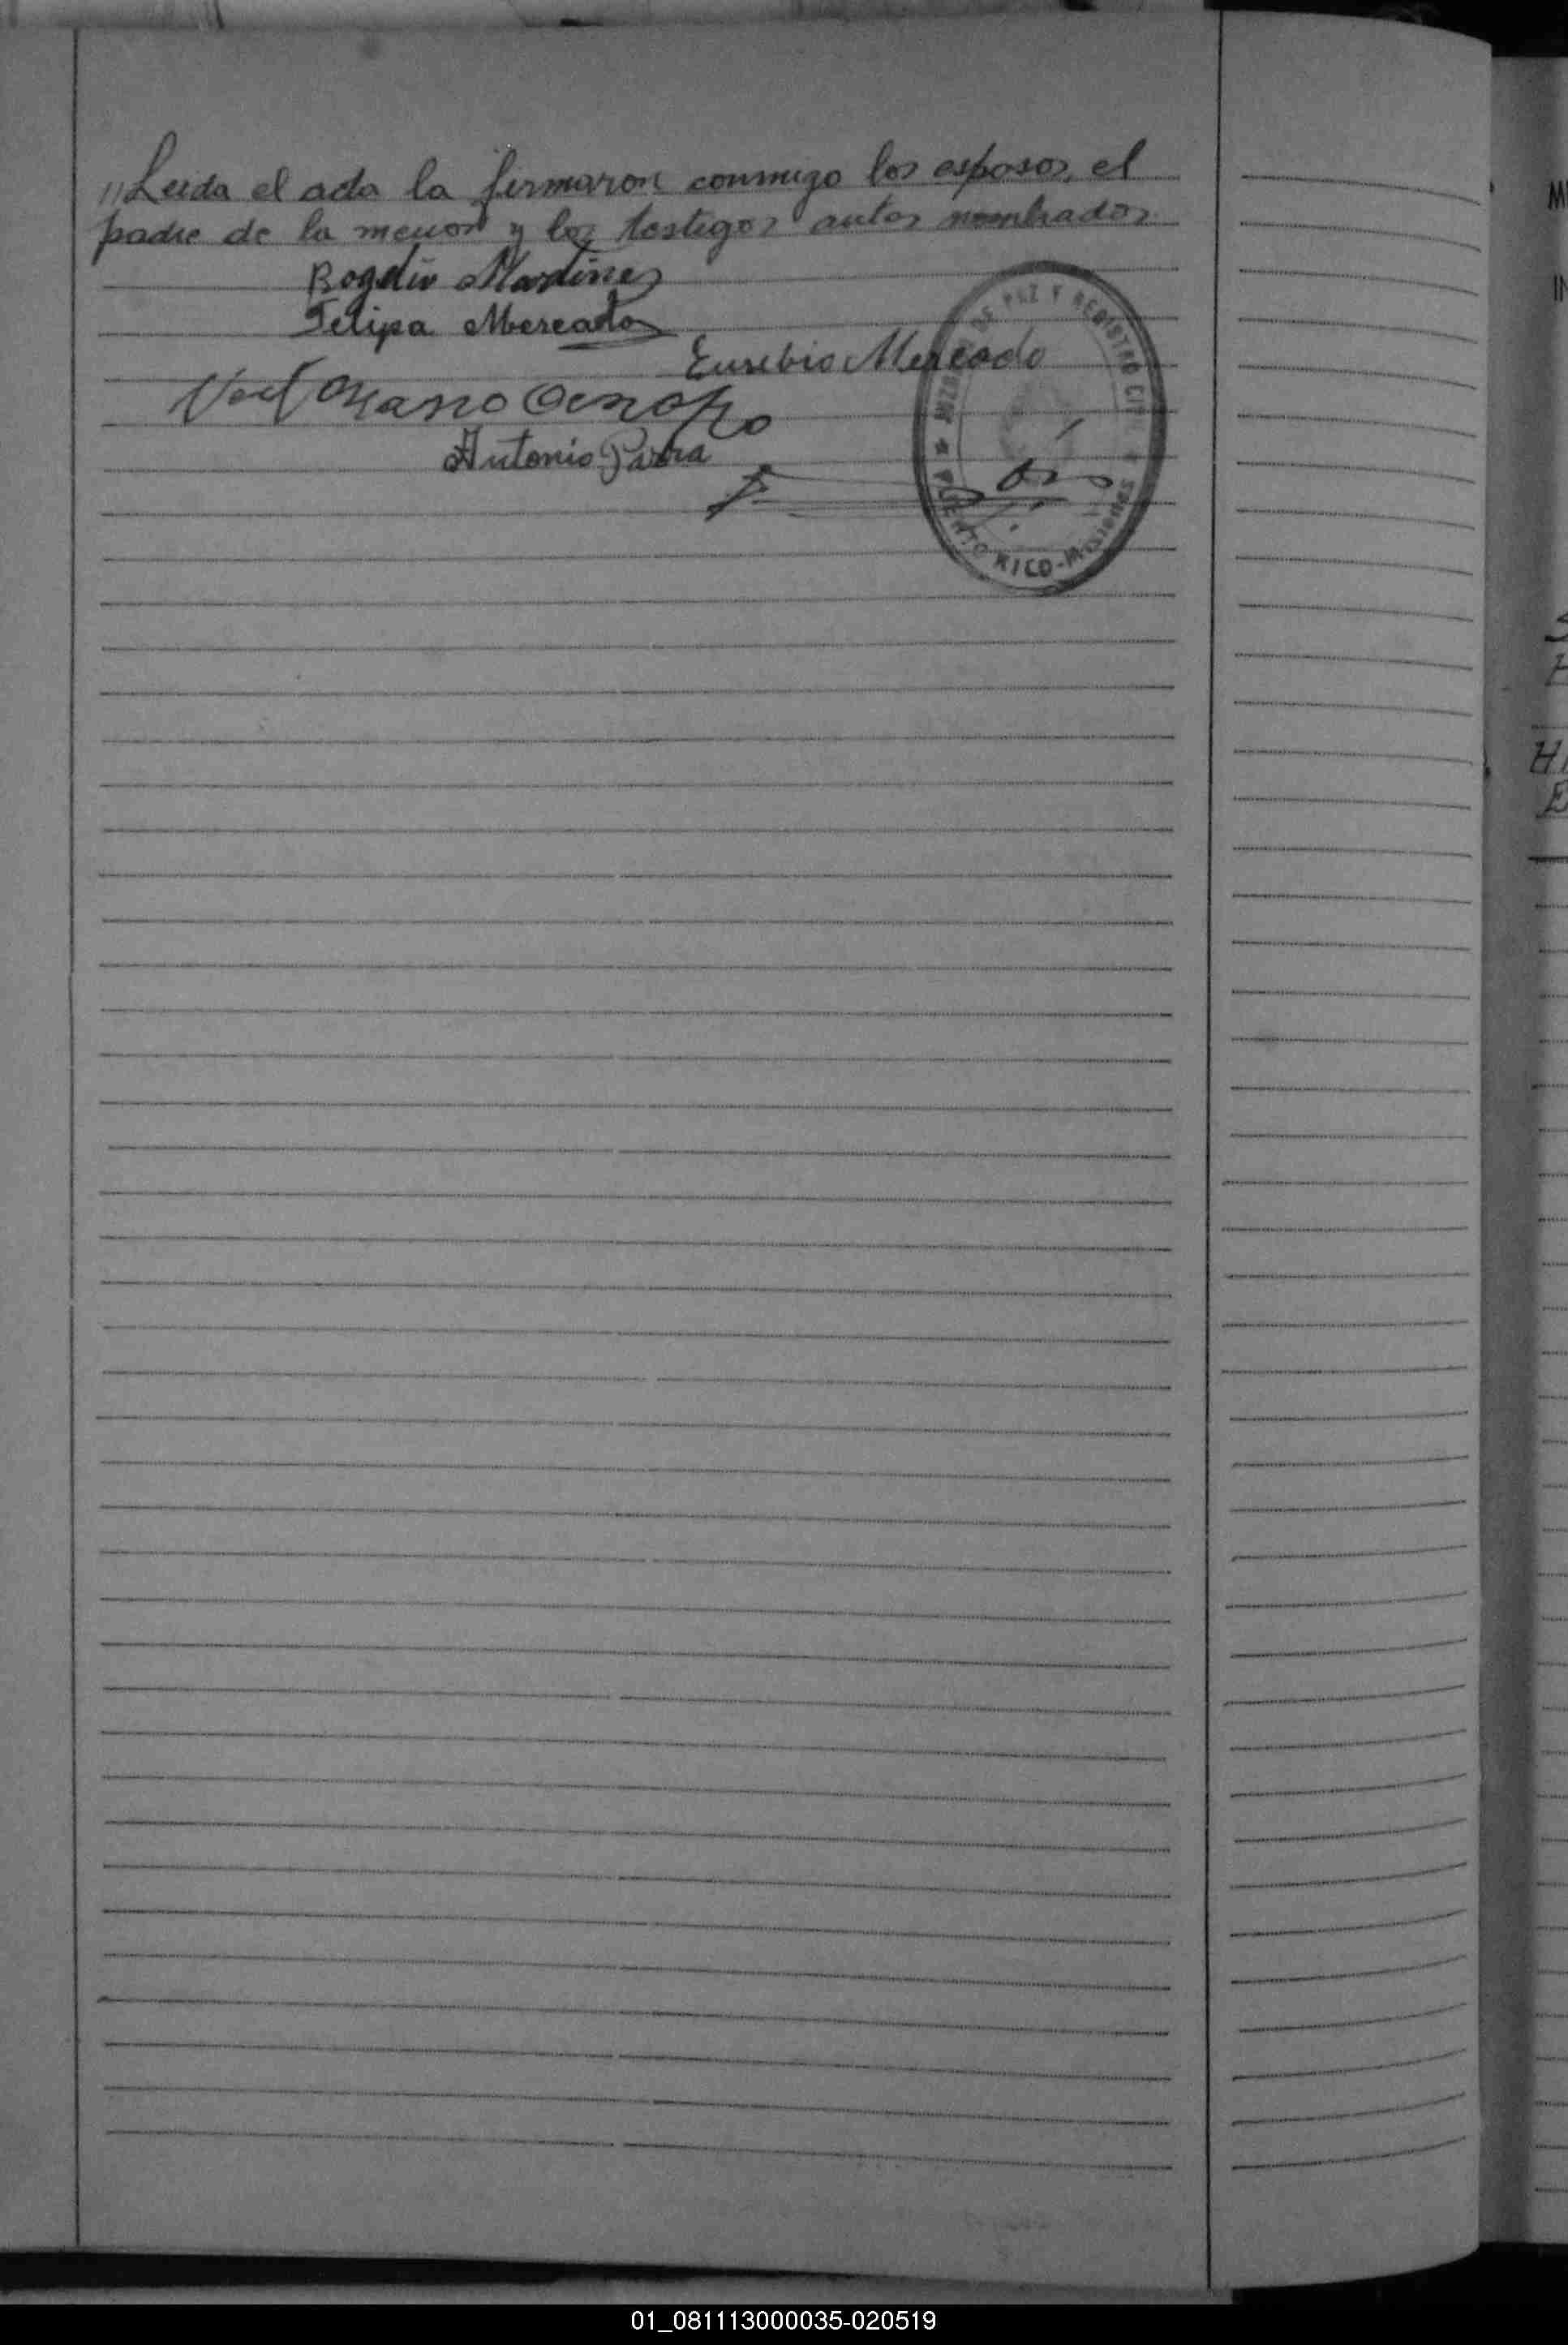 "Leida el acta la firmaron conmigo los esposos, el
padre de la menor y los testigos antes nombrados
Rogelio Martinez
Felipa Mercado
Eusebio Mercado
Antonio Parra
JUZGADO DE PAZ Y REGISTRO CIVIL
PUERTO RICO-Misiones
M
IN
H
E
01_081113000035-020519